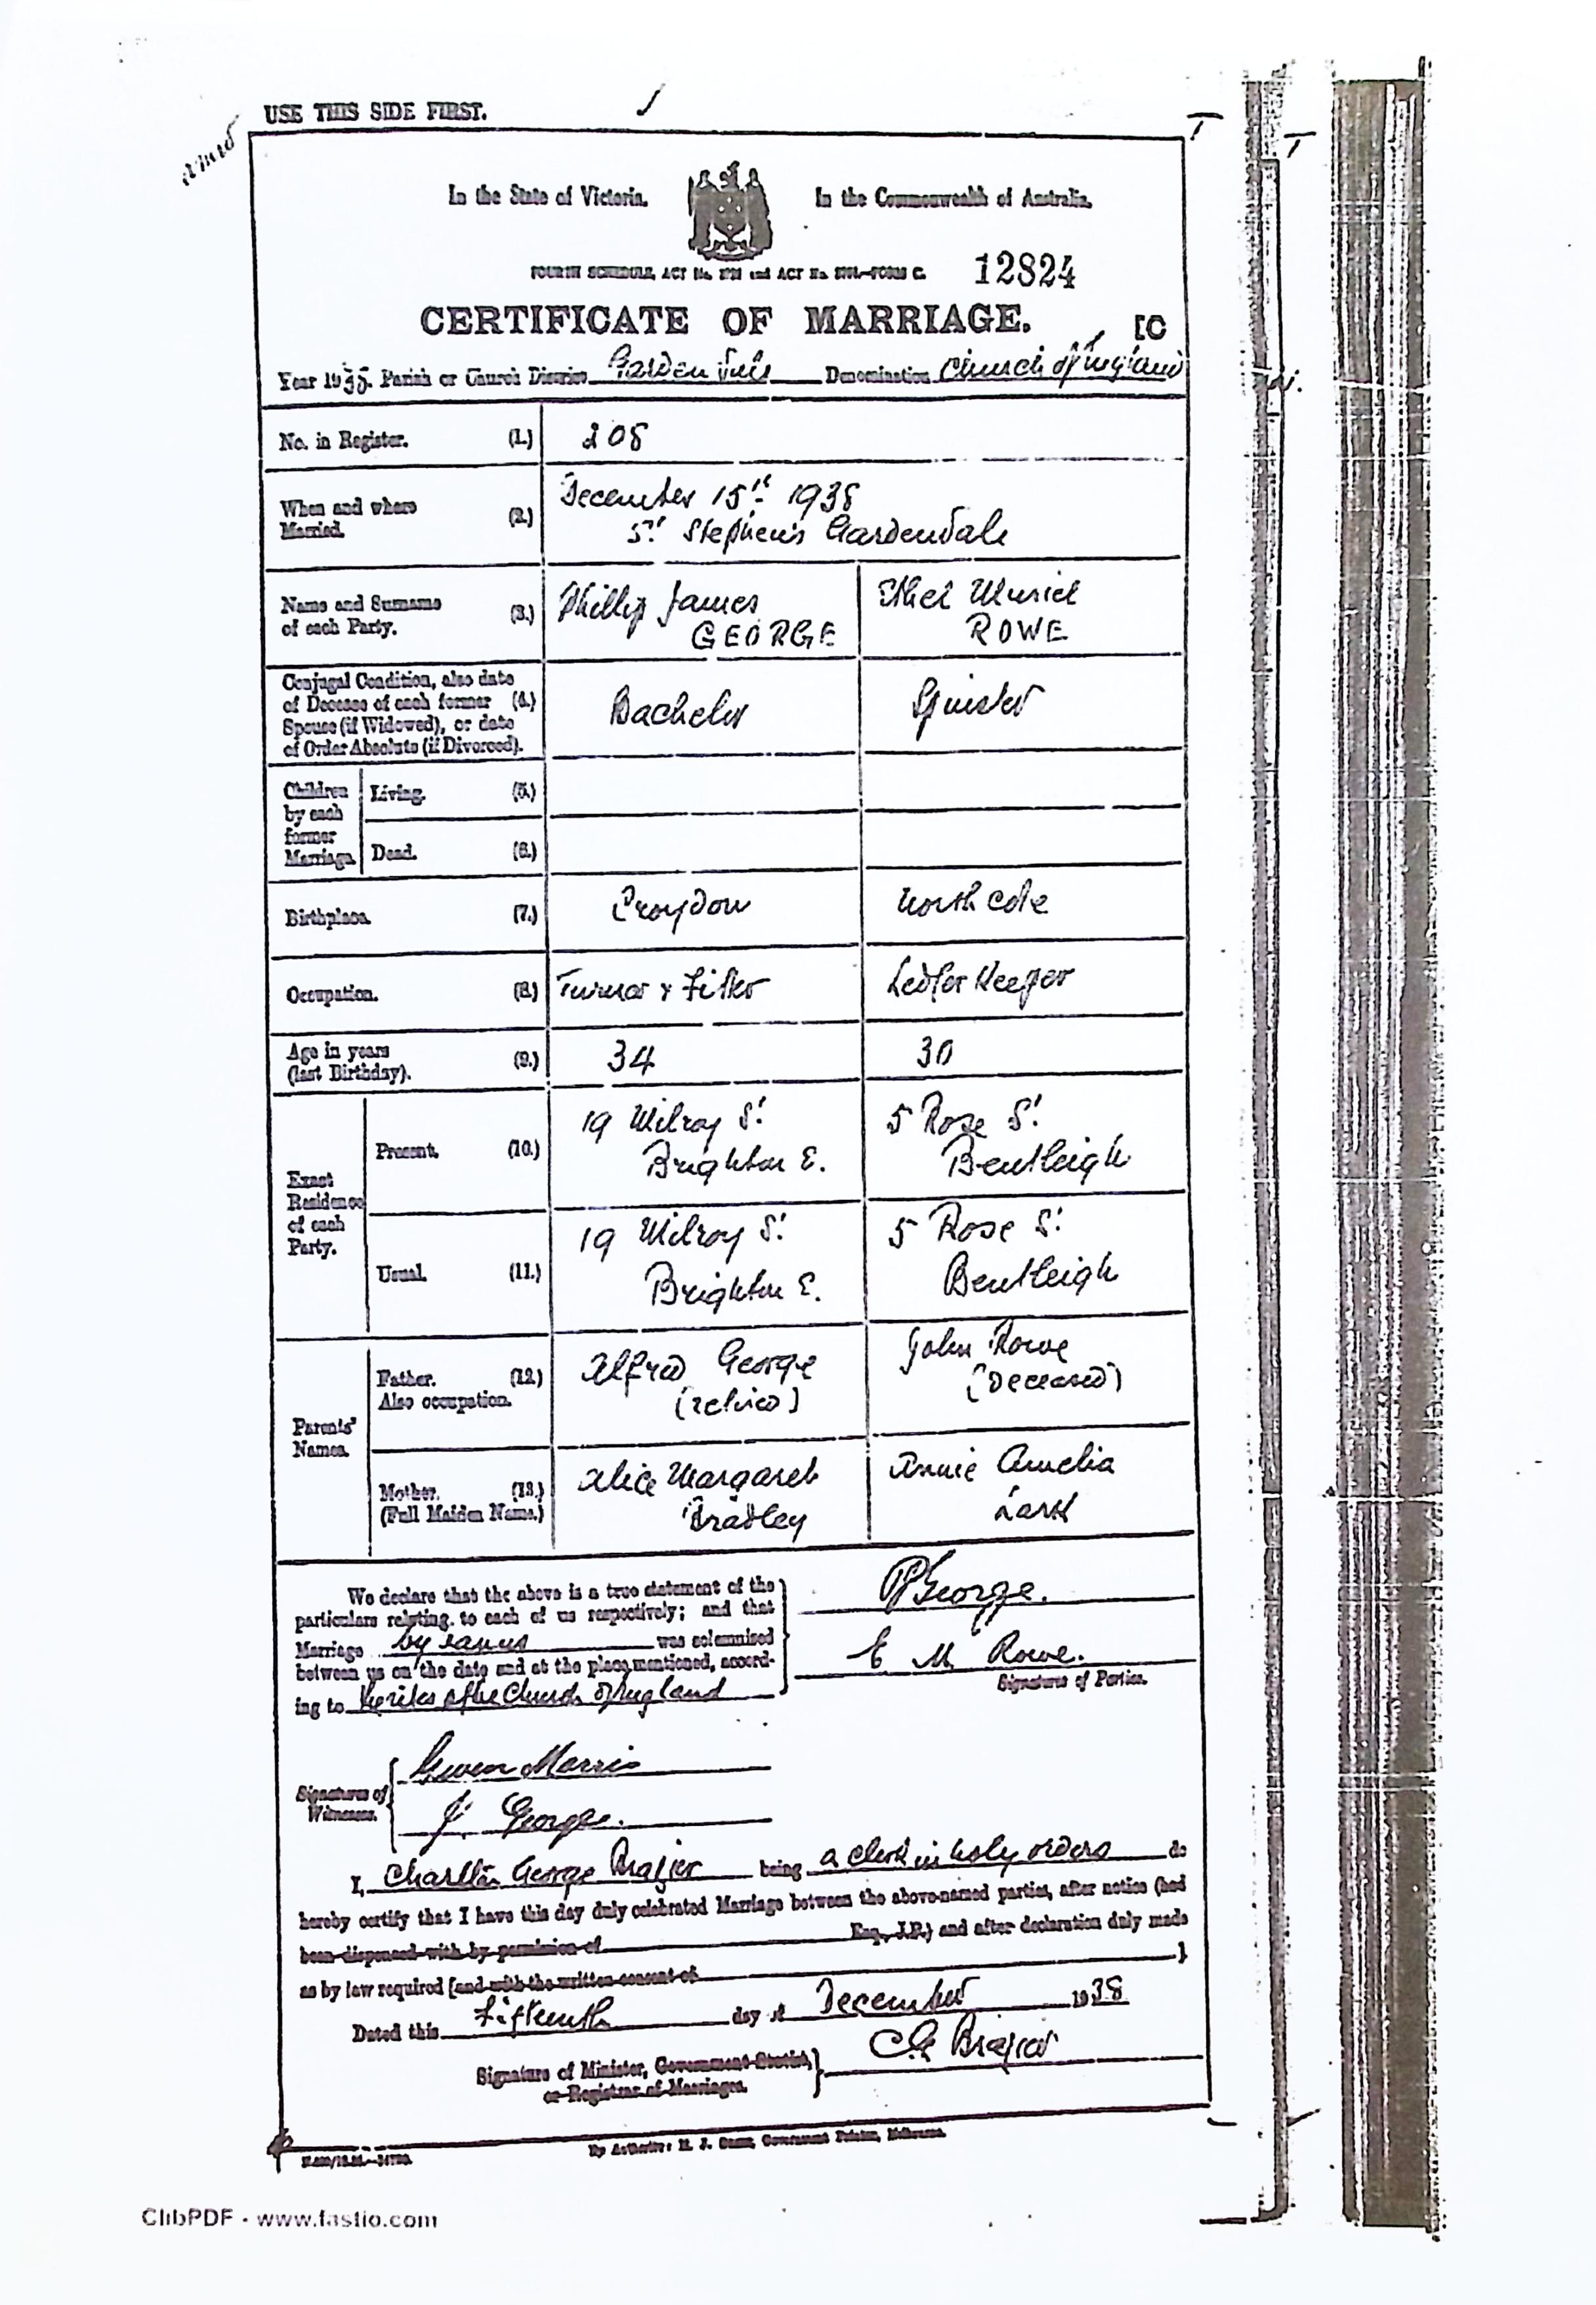 USE THIS SIDE FIRST.
In the State of Victoria. In the Commonwealth of Australia.
FOURTH SCHEDULE, ACT No. and ACT No. —FORM C. 12824
CERTIFICATE OF MARRIAGE. [C
Year 19 Parish or Church District Gardenvale Denomination Church of England
No. in Register. (1.) 208
When and where Married. (2.) December 15th 1938
St Stephen's Gardenvale
Name and Surname of each Party. (3.) Phillip James GEORGE Ethel Muriel ROWE
Conjugal Condition, also date
of Decease of each former (4.) Bachelor Spinster
Spouse (if Widowed), or date
of Order Absolute (if Divorced).
Children by each former Marriage.
Living. (5.)
Dead. (6.)
Birthplace. (7.) Croydon Northcote
Occupation. (8.) Turner & Fitter Ledger Keeper
Age in years (last Birthday). (9.) 34 30
Exact Residence of each Party.
Present. (10.) 19 Milroy St Brighton E. 5 Rose St Bentleigh
Usual. (11.) 19 Milroy St Brighton E. 5 Rose St Bentleigh
Parents' Names.
Father. (12.) Also occupation. Alfred George (retired) John Rowe (Deceased)
Mother. (13.) (Full Maiden Name.) Alice Margaret Bradley Annie Amelia
We declare that the above is a true statement of the
particulars relating to each of us respectively; and that
Marriage by was solemnised
between us on the date and at the place mentioned, accord-
ing to the rites of the Church of England
PJGeorge.
E M Rowe.
Signatures of Parties.
Signatures of Witnesses.
Gwen Morris
J. George.
I, George Brazier being a clerk in holy orders do
hereby certify that I have this day duly celebrated Marriage between the above-named parties, after notice (had
been dispensed with by permission of Esq., J.P.) and after declaration duly made
as by law required [and with the written consent of ]
Dated this Fifteenth day of December 1938
Signature of Minister, Government Statist,
or Registrar of Marriages.
CG Brazier
By Authority: H. J. Government Printer, Melbourne.
ClibPDF - www.fastio.com